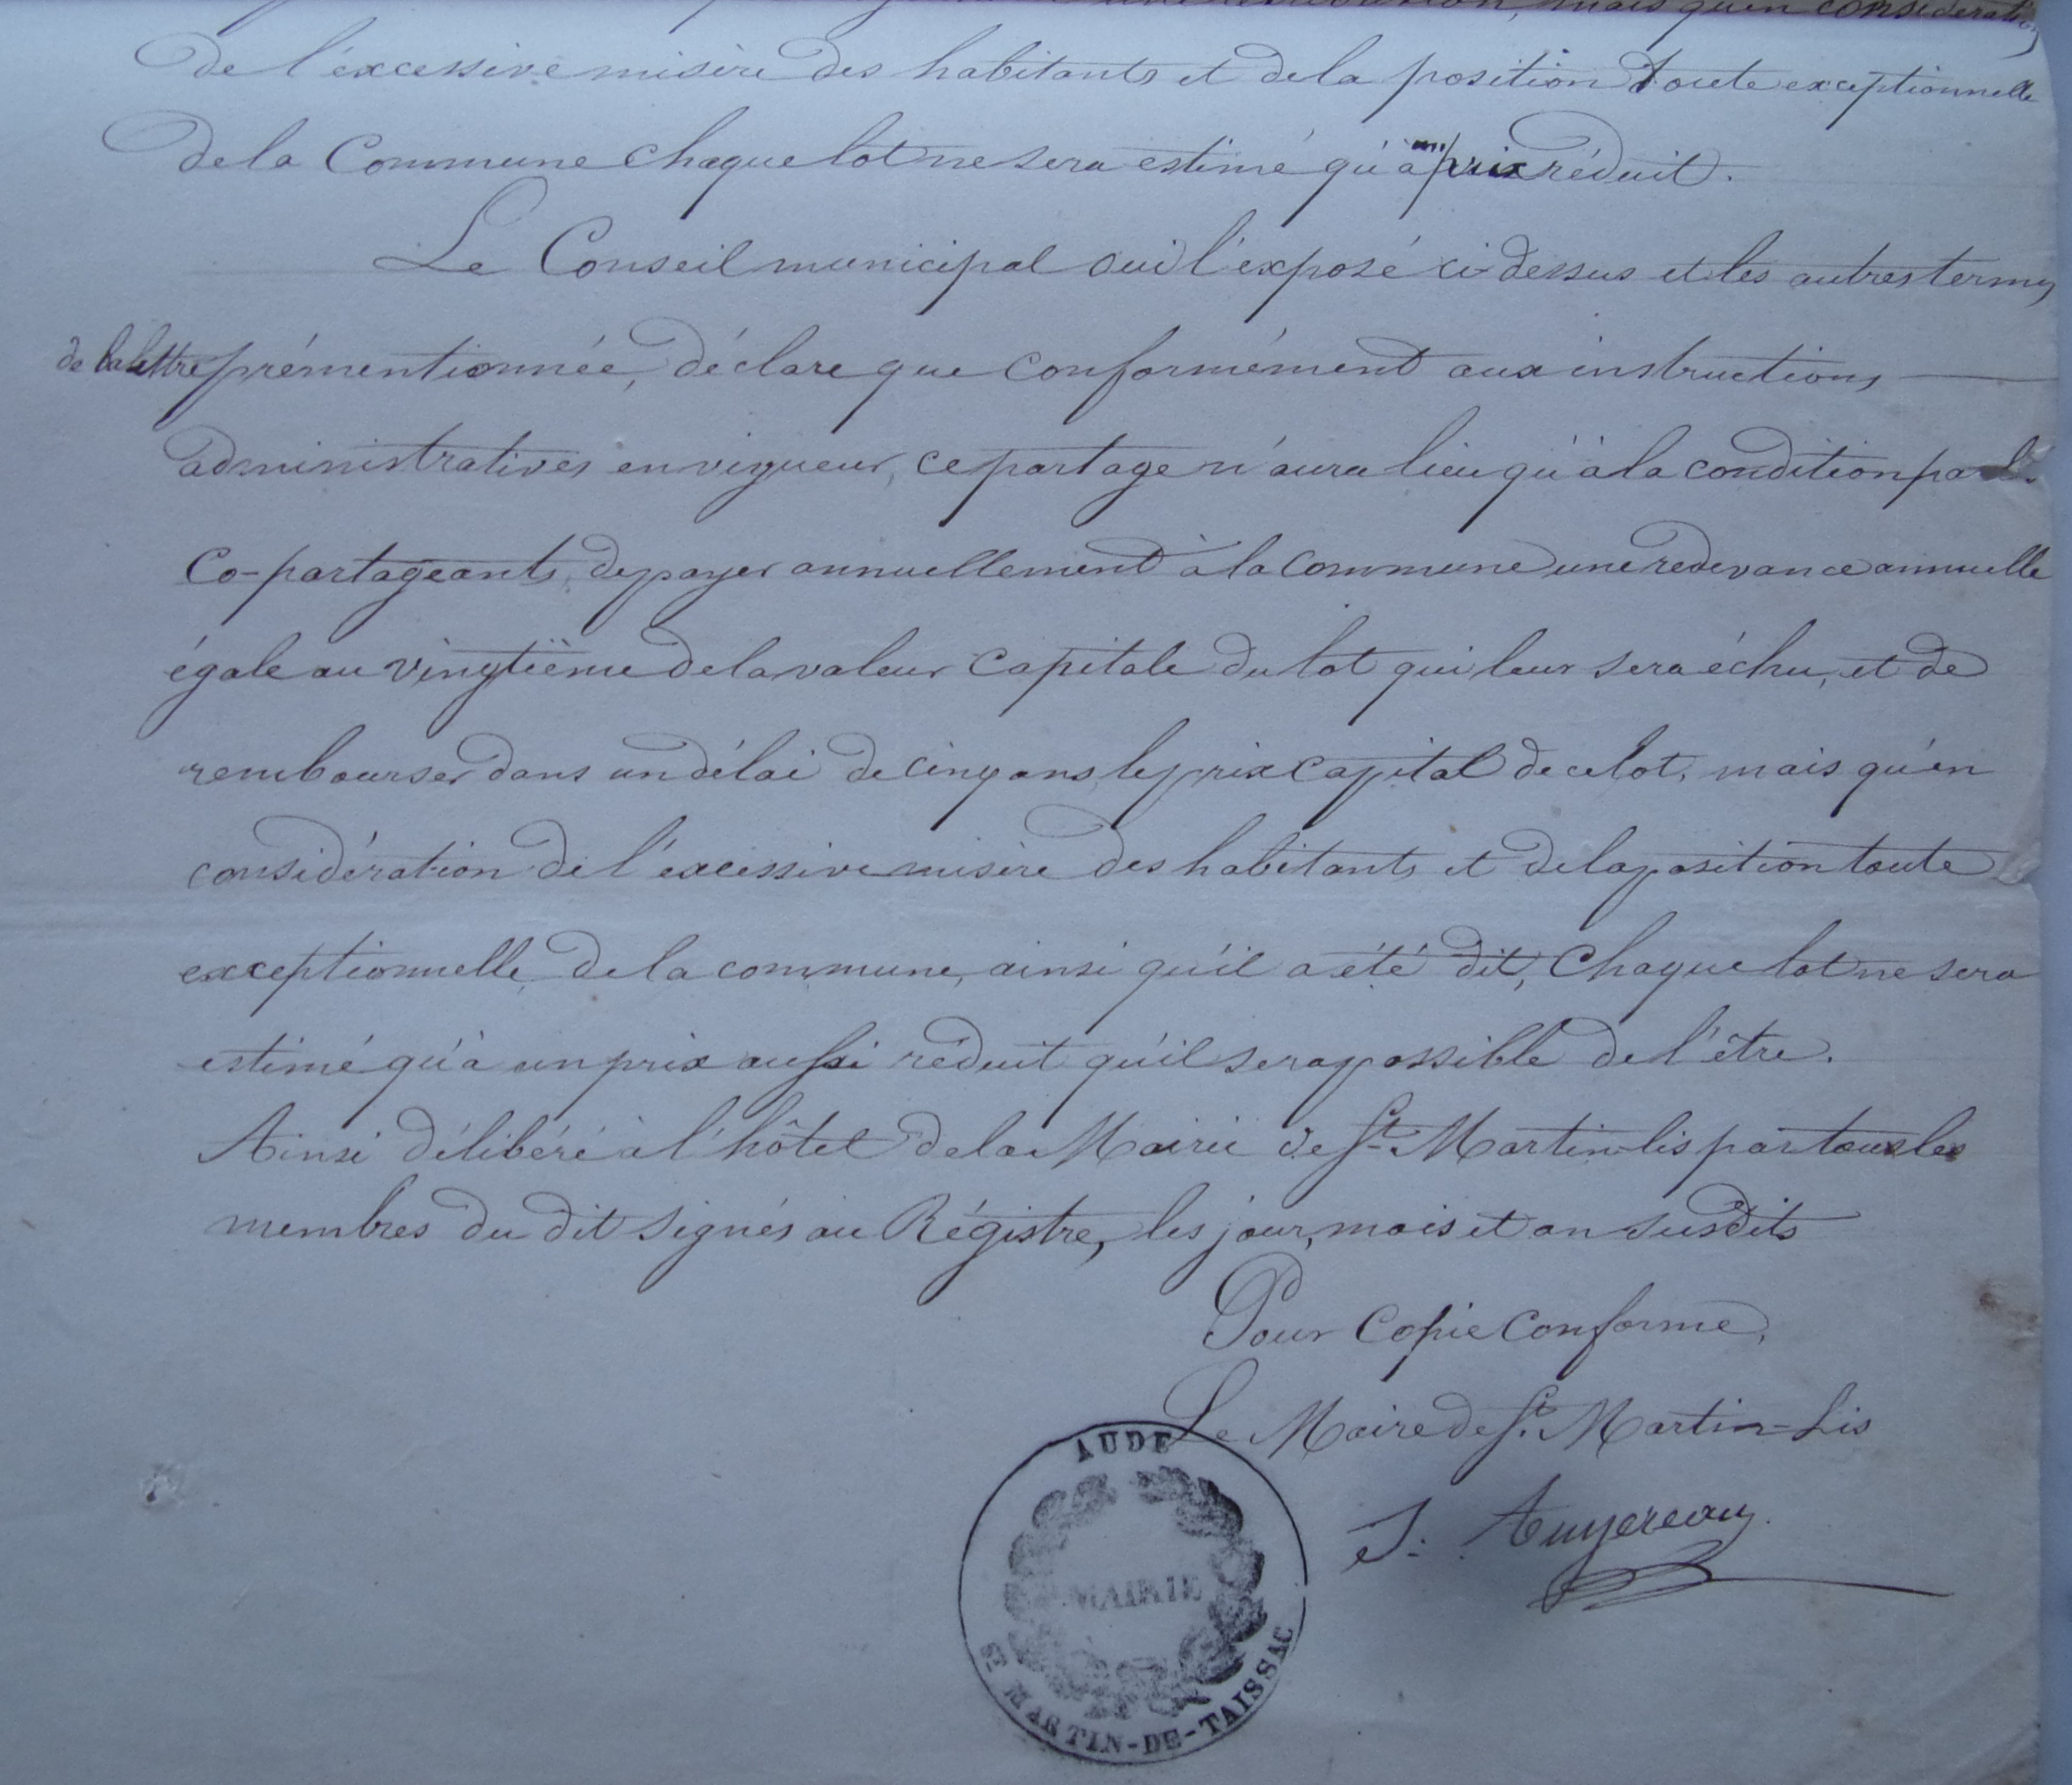 mais qu'en considération
de l'éxcessive misère des habitants et de la position toute exceptionnelle
de la Commune chaque lot ne sera estimé qu'à un prix réduit.
Le Conseil municipal oui l'exposé ci-dessus et les autres termes
de la lettre prémentionnée, déclare que conformément aux instructions
administratives en vigueur, ce partage n'aura lieu qu'à la condition par les
Co-partageants, de payer annuellement à la Commune une redevance annuelle
égale au vingtième de la valeur capitale du lot qui leur sera échu, et de
rembourser dans un délai de cinq ans, le prix capital de ce lot, mais qu'en
considération de l'excessive misère des habitants et de la position toute
exceptionnelle de la commune, ainsi qu'il a été dit, Chaque lot ne sera
estimé qu'à un prix aussi réduit qu'il sera possible de l'être.
Ainsi délibéré à l'hôtel de la Mairie de St. Martin-lis par tous les
membres du dit signés au Régistre, les jour, mois et an susdits
Pour Copie Conforme,
Le Maire de St. Martin-Lis
AUDE
MAIRIE
ST MARTIN-DE-TAISSAC